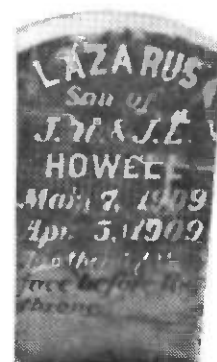 LAZARUS
Son of
J. W. & J. E.
HOWELL
Mar. 7, 1909
Apr. 5, 1909
before
throne